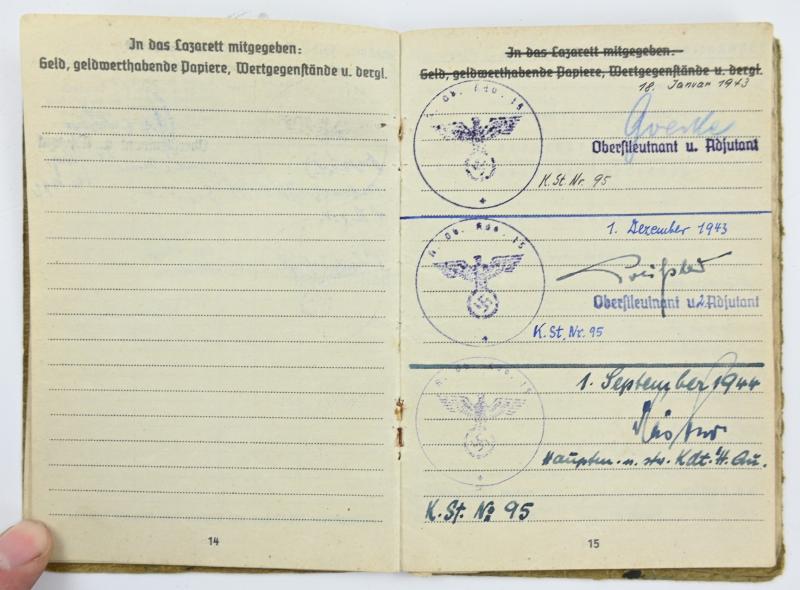 In das Lazarett mitgegeben:
Geld, geldwerthabende Papiere, Wertgegenstände u. dergl.
14
In das Lazarett mitgegeben:
Geld, geldwerthabende Papiere, Wertgegenstände u. dergl.
18. Januar 1943
Oberstleutnant u. Adjutant
K.St.Nr. 95
1. Dezember 1943
Oberstleutnant u. Adjutant
K.St.Nr. 95
1. September 1944
Hauptm. u. stv. Kdt. H. Qu.
K.St. No 95
15